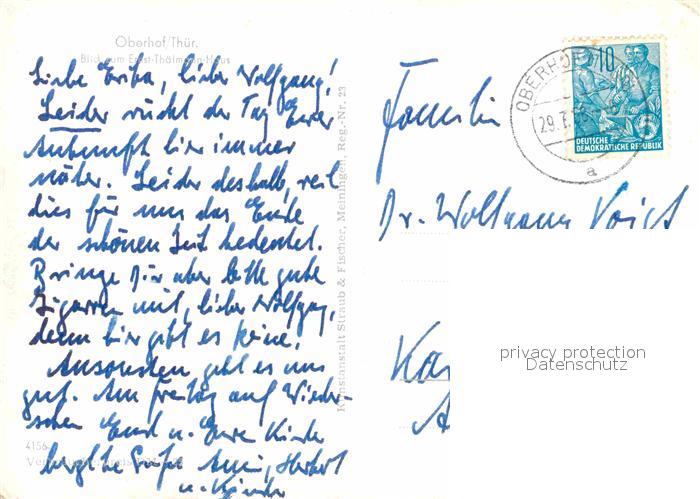 Oberhof/Thür.
Blick zum Ernst-Thälmann-Haus
Liebe Erika, lieber Wolfgang!
Leider rückt der Tag Eurer
Ankunft hier immer
näher. Leider deshalb, weil
dies für uns das Ende
der schönen Zeit bedeutet.
Bringe Dir aber bitte gute
Zigarren mit, lieber Wolfgang,
denn hier gibt es keine!
Ansonsten geht es uns
gut. Am Freitag auf Wieder-
sehen Euch u. Eure Kinder
herzliche Grüße Anni, Herbert
u. Kinder
4156
Kunstanstalt Straub & Fischer, Meiningen, Reg.-Nr. 23
10
DEUTSCHE
DEMOKRATISCHE REPUBLIK
OBERHOF
29.7.
a
Familie
Dr. Wolfgang Voigt
Kar
A
privacy protection
Datenschutz